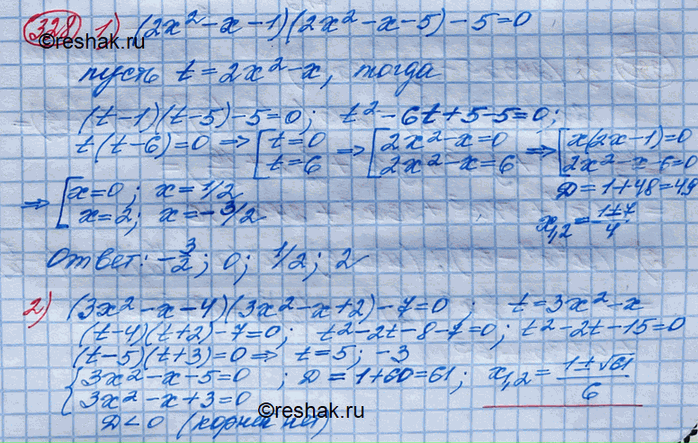 328 1) (2x²-x-1)(2x²-x-5)-5=0
©reshak.ru
пусть t=2x²-x, тогда
(t-1)(t-5)-5=0; t²-6t+5-5=0;
t(t-6)=0 ⇒ [t=0 t=6 ⇒ [2x²-x=0 2x²-x=6 ⇒ [x(2x-1)=0 2x²-x-6=0
D=1+48=49
⇒ [x=0; x=1/2 x=2; x=-3/2
x₁,₂=(1±7)/4
Ответ: -3/2; 0; 1/2; 2
2) (3x²-x-4)(3x²-x+2)-7=0; t=3x²-x
(t-4)(t+2)-7=0; t²-2t-8-7=0; t²-2t-15=0
(t-5)(t+3)=0 ⇒ t=5; -3
{3x²-x-5=0; D=1+60=61; x₁,₂=(1±√61)/6
3x²-x+3=0
D<0 (корней нет)
©reshak.ru